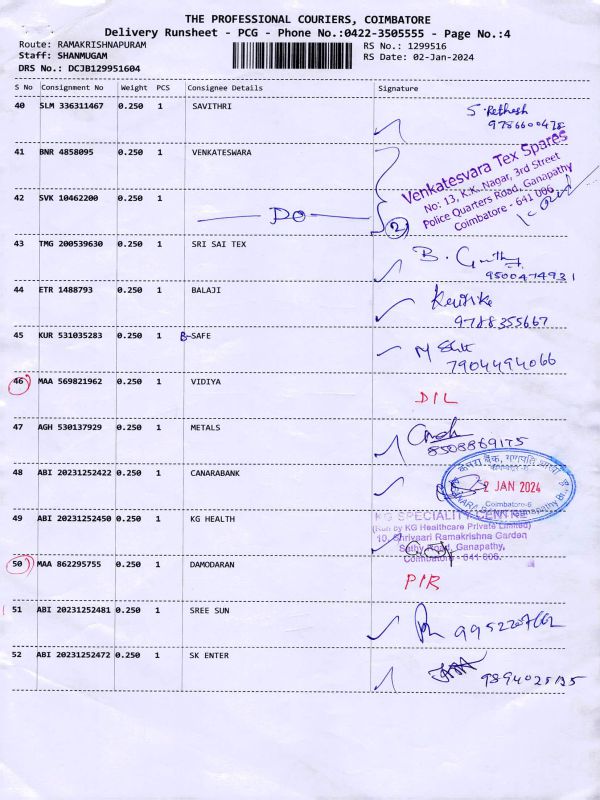 THE PROFESSIONAL COURIERS, COIMBATORE
Delivery Runsheet - PCG - Phone No.:0422-3505555 - Page No.:4
Route: RAMAKRISHNAPURAM RS No.: 1299516
Staff: SHANMUGAM RS Date: 02-Jan-2024
DRS No.: DCJB129951604
S No Consignment No Weight PCS Consignee Details Signature
40 SLM 336311467 0.250 1 SAVITHRI
41 BNR 4858095 0.250 1 VENKATESWARA
Venkatesvara Tex Spares
No: 13, K.K. Nagar, 3rd Street
Police Quarters Road, Ganapathy
Coimbatore - 641 006
42 SVK 10462200 0.250 1 DO 2
43 TMG 200539630 0.250 1 SRI SAI TEX
9500474931
44 ETR 1488793 0.250 1 BALAJI
9788355667
45 KUR 531035283 0.250 1 B-SAFE
7904494066
46 MAA 569821962 0.250 1 VIDIYA DIL
47 AGH 530137929 0.250 1 METALS
8508869175
48 ABI 20231252422 0.250 1 CANARABANK
2 JAN 2024
Coimbatore-6
49 ABI 20231252450 0.250 1 KG HEALTH
KG SPECIALITY CENTRE
(Run by KG Healthcare Private Limited)
10, Shrivaari Ramakrishna Garden
Sathy Road, Ganapathy,
Coimbatore - 641 006.
50 MAA 862295755 0.250 1 DAMODARAN PIR
51 ABI 20231252481 0.250 1 SREE SUN
52 ABI 20231252472 0.250 1 SK ENTER